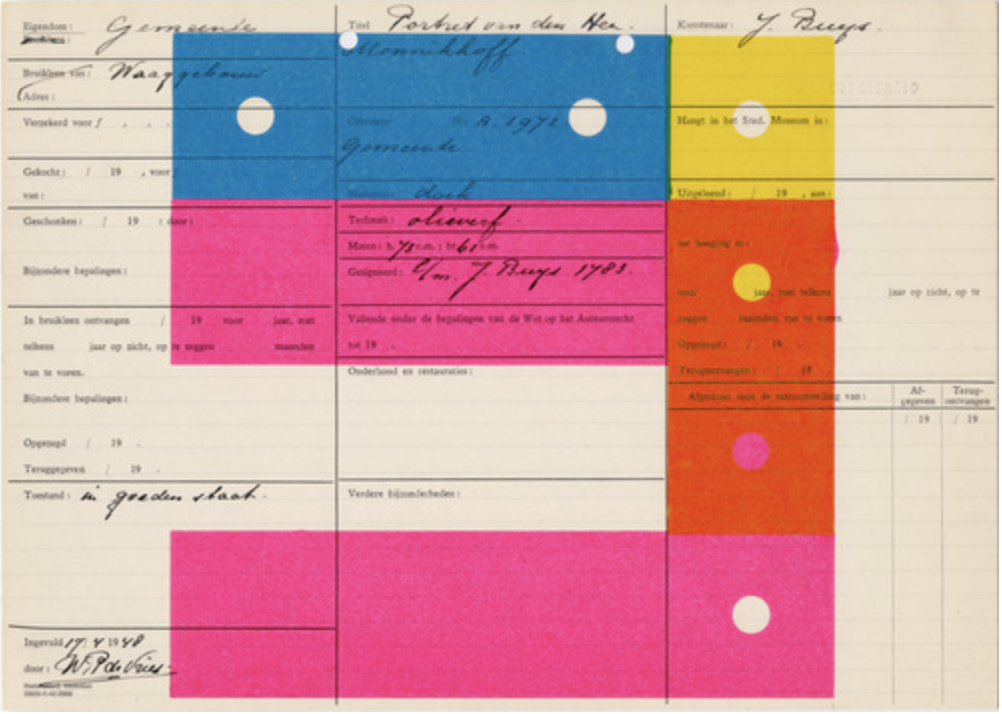 Eigendom: Gemeente
Bruikleen:
Bruikleen van: Waaggebouw
Adres:
Verzekerd voor f , , .
Gekocht: / 19 , voor
van:
Geschonken: / 19 : door:
Bijzondere bepalingen:
In bruikleen ontvangen / 19 voor jaar, met
telkens jaar op zicht, op te zeggen maanden
van te voren.
Bijzondere bepalingen:
Opgezegd / 19 .
Teruggegeven / 19 .
Toestand: in goeden staat.
Ingevuld 17/4 1948
door: W.P. de Vries
Titel Portret van den Heer
Monnikhoff
Catalogus No. A. 1972
Gemeente
Materiaal: doek
Techniek: olieverf.
Maten: h. 73 c.m.; br. 61 c.m.
Gesigneerd: l/m. J. Buys 1783.
Vallende onder de bepalingen van de Wet op het Auteursrecht
tot 19 .
Onderhoud en restauraties:
Verdere bijzonderheden:
Kunstenaar: J. Buys.
Hangt in het Sted. Museum in:
Uitgeleend: / 19 , aan:
ter hanging in:
voor jaar, met telkens jaar op zicht, op te
zeggen maanden van te voren
Opgezegd: / 19 .
Terugontvangen: / 19 .
Afgegeven voor de tentoonstelling van:
Af-
gegeven
Terug-
ontvangen
/ 19 / 19